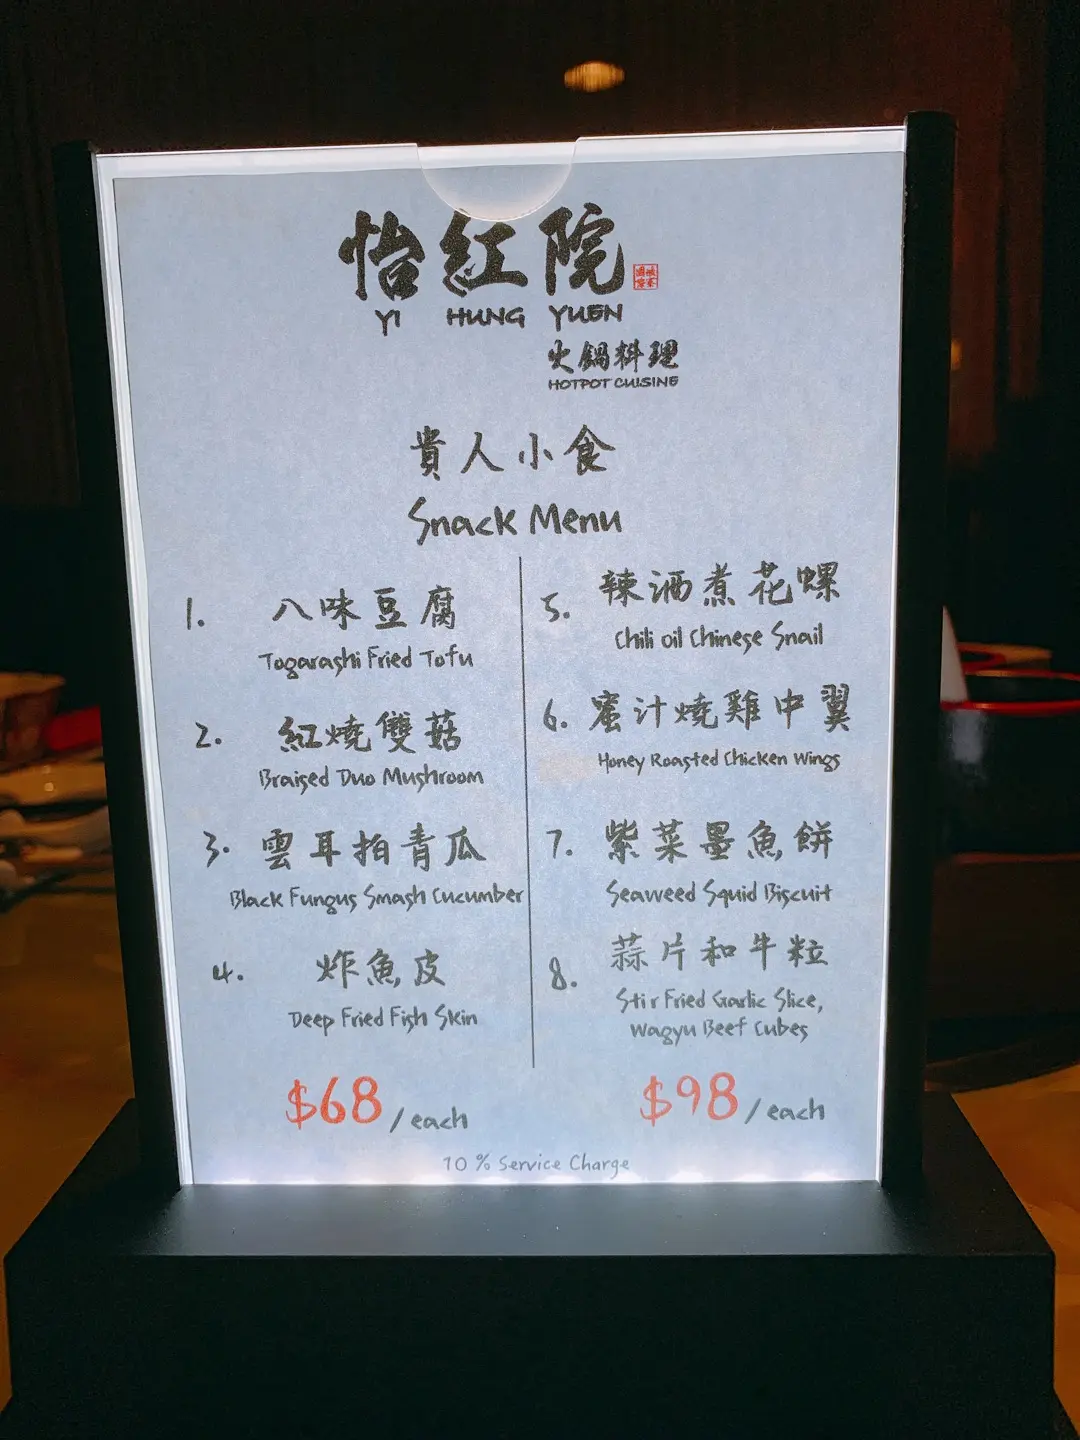 怡紅院
YI HUNG YUEN
火鍋料理
HOTPOT CUISINE
貴人小食
Snack Menu
1. 八味豆腐
Togarashi Fried Tofu
2. 紅燒雙菇
Braised Duo Mushroom
3. 雲耳拍青瓜
Black Fungus Smash Cucumber
4. 炸魚皮
Deep Fried Fish Skin
$68 / each
5. 辣酒煮花螺
Chili oil Chinese Snail
6. 蜜汁燒雞中翼
Honey Roasted Chicken Wings
7. 紫菜墨魚餅
Seaweed Squid Biscuit
8. 蒜片和牛粒
Stir Fried Garlic Slice,
Wagyu Beef Cubes
$98 / each
10 % Service Charge